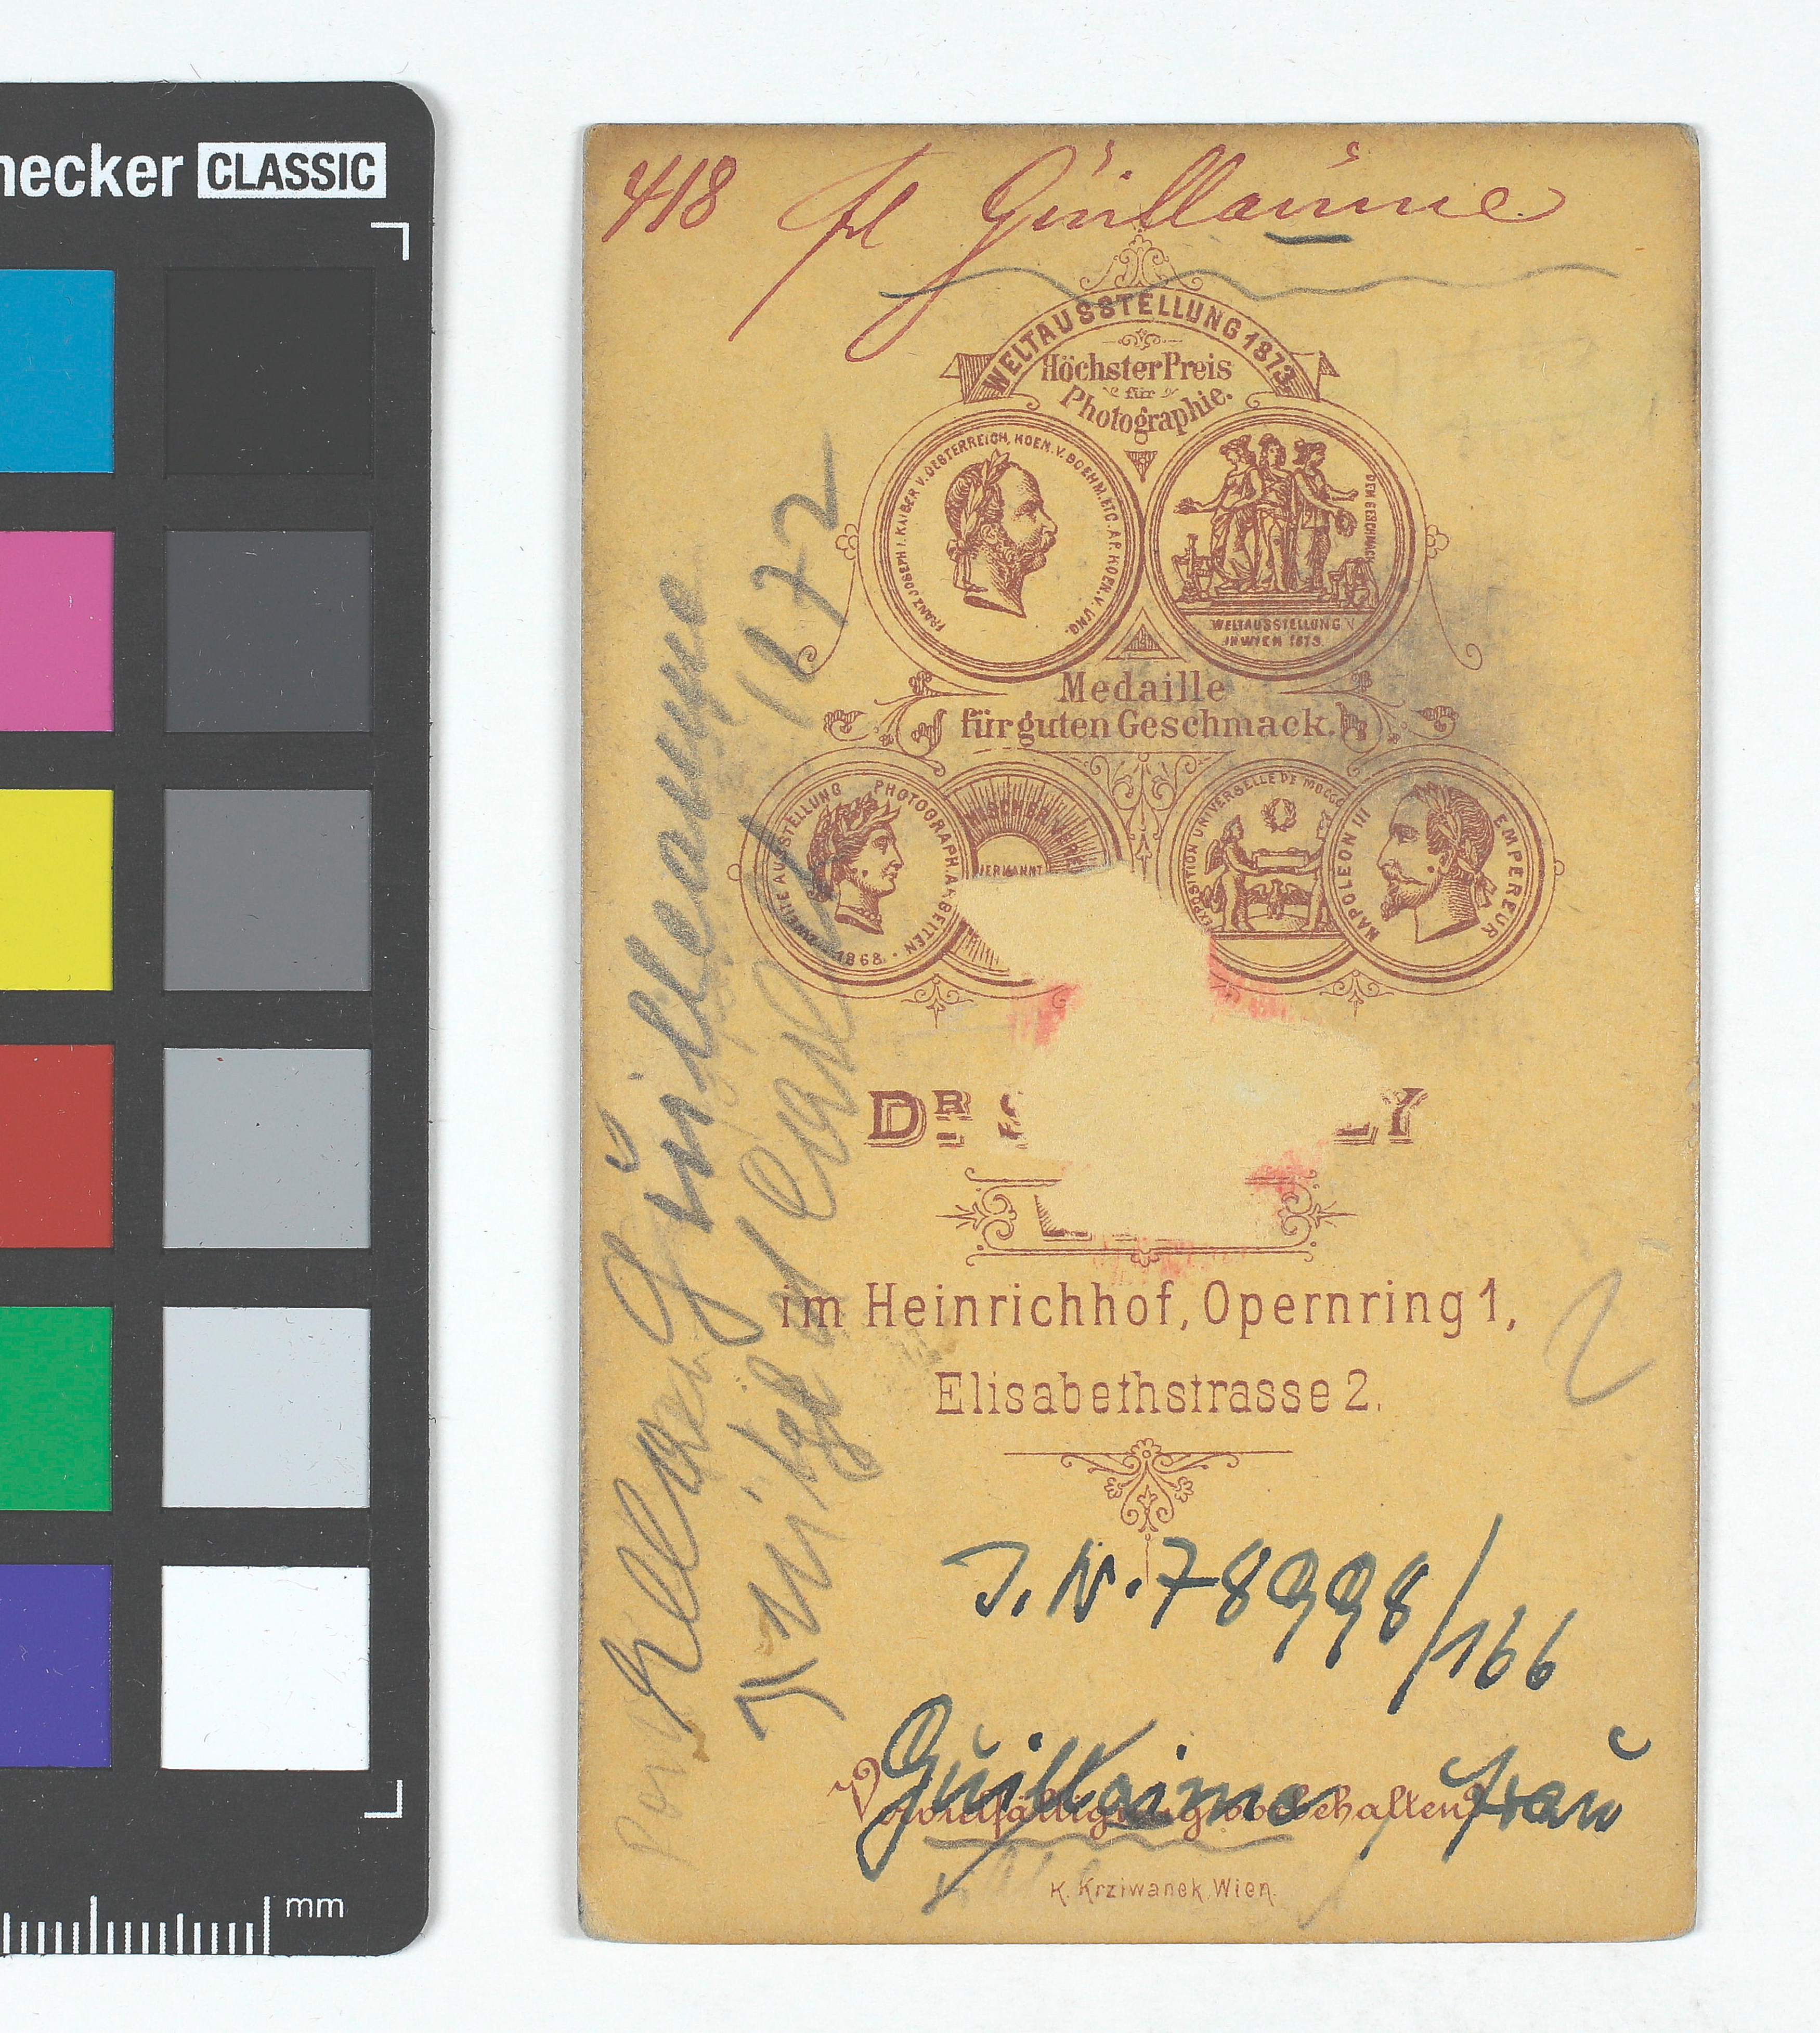 necker CLASSIC
418 Frl Guillaume
WELTAUSSTELLUNG 1873
Höchster Preis
für
Photographie.
FRANZ JOSEPH I. KAISER V. OESTERREICH, KOEN. V. BOEHM. ETC. AP. KOEN. V. UNG.
DEM GESCHMACK
WELTAUSSTELLUNG
IN WIEN 1873.
Medaille
für guten Geschmack.
ZWEITE AUSSTELLUNG PHOTOGRAPH. ARBEITEN
1868
EXPOSITION UNIVERSELLE DE MDCCC
NAPOLEON III EMPEREUR
DR S LY
im Heinrichhof, Opernring 1,
Elisabethstrasse 2.
2
J.N. 78998/166
Guillaume, Frau
Vervielfältigung vorbehalten.
K. Krziwanek, Wien.
Guilleaume
1672
mm